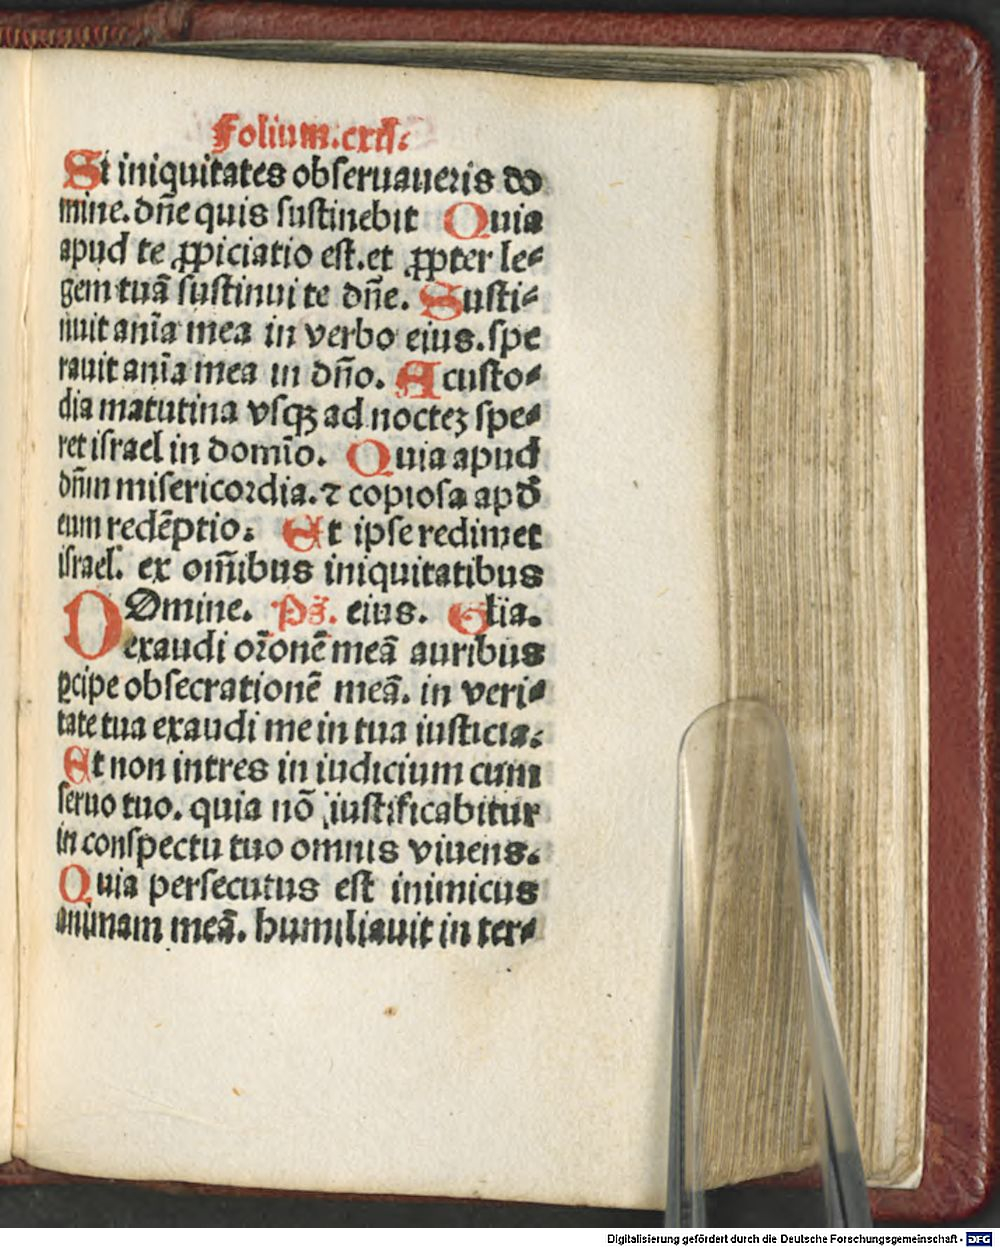 Folium.cxli.
Si iniquitates obseruaueris do
mine. dñe quis sustinebit Quia
apud te ꝓpiciatio est. et ꝓpter le⸗
gem tuã sustinui te dñe. Susti⸗
nuit aniã mea in verbo eius. spe
rauit aniã mea in dño. A custo⸗
dia matutina vsqꝫ ad nocteꝫ spe⸗
ret israel in domĩo. Quia apud
dñm misericordia. ⁊ copiosa apd̕
eum redẽptio. Et ipse redimet
israel. ex om̃ibus iniquitatibus
Domine. Ps̃. eius. Glia.
exaudi or̃onẽ meã auribus
ꝑcipe obsecrationẽ meã. in veri⸗
tate tua exaudi me in tua iusticia.
Et non intres in iudicium cum
seruo tuo. quia nõ iustificabitur
in conspectu tuo omnis viuens.
Quia persecutus est inimicus
animam meã. humiliauit in ter⸗
Digitalisierung gefördert durch die Deutsche Forschungsgemeinschaft - DFG